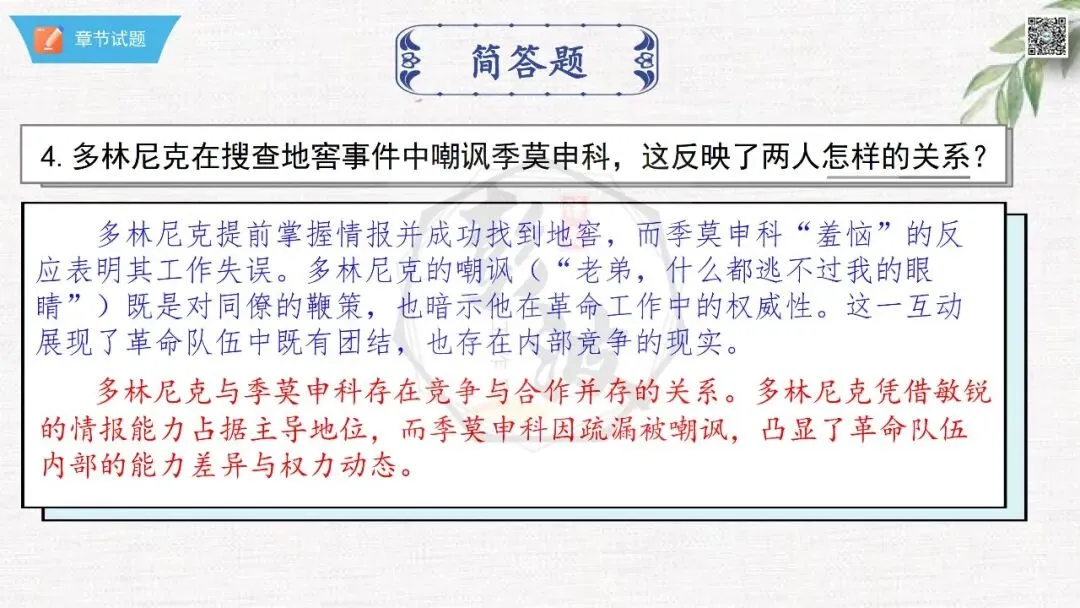 章节试题
简答题
4. 多林尼克在搜查地窖事件中嘲讽季莫申科，这反映了两人怎样的关系？
多林尼克提前掌握情报并成功找到地窖，而季莫申科“羞恼”的反
应表明其工作失误。多林尼克的嘲讽（“老弟，什么都逃不过我的眼
睛”）既是对同僚的鞭策，也暗示他在革命工作中的权威性。这一互动
展现了革命队伍中既有团结，也存在内部竞争的现实。
多林尼克与季莫申科存在竞争与合作并存的关系。多林尼克凭借敏锐
的情报能力占据主导地位，而季莫申科因疏漏被嘲讽，凸显了革命队伍
内部的能力差异与权力动态。